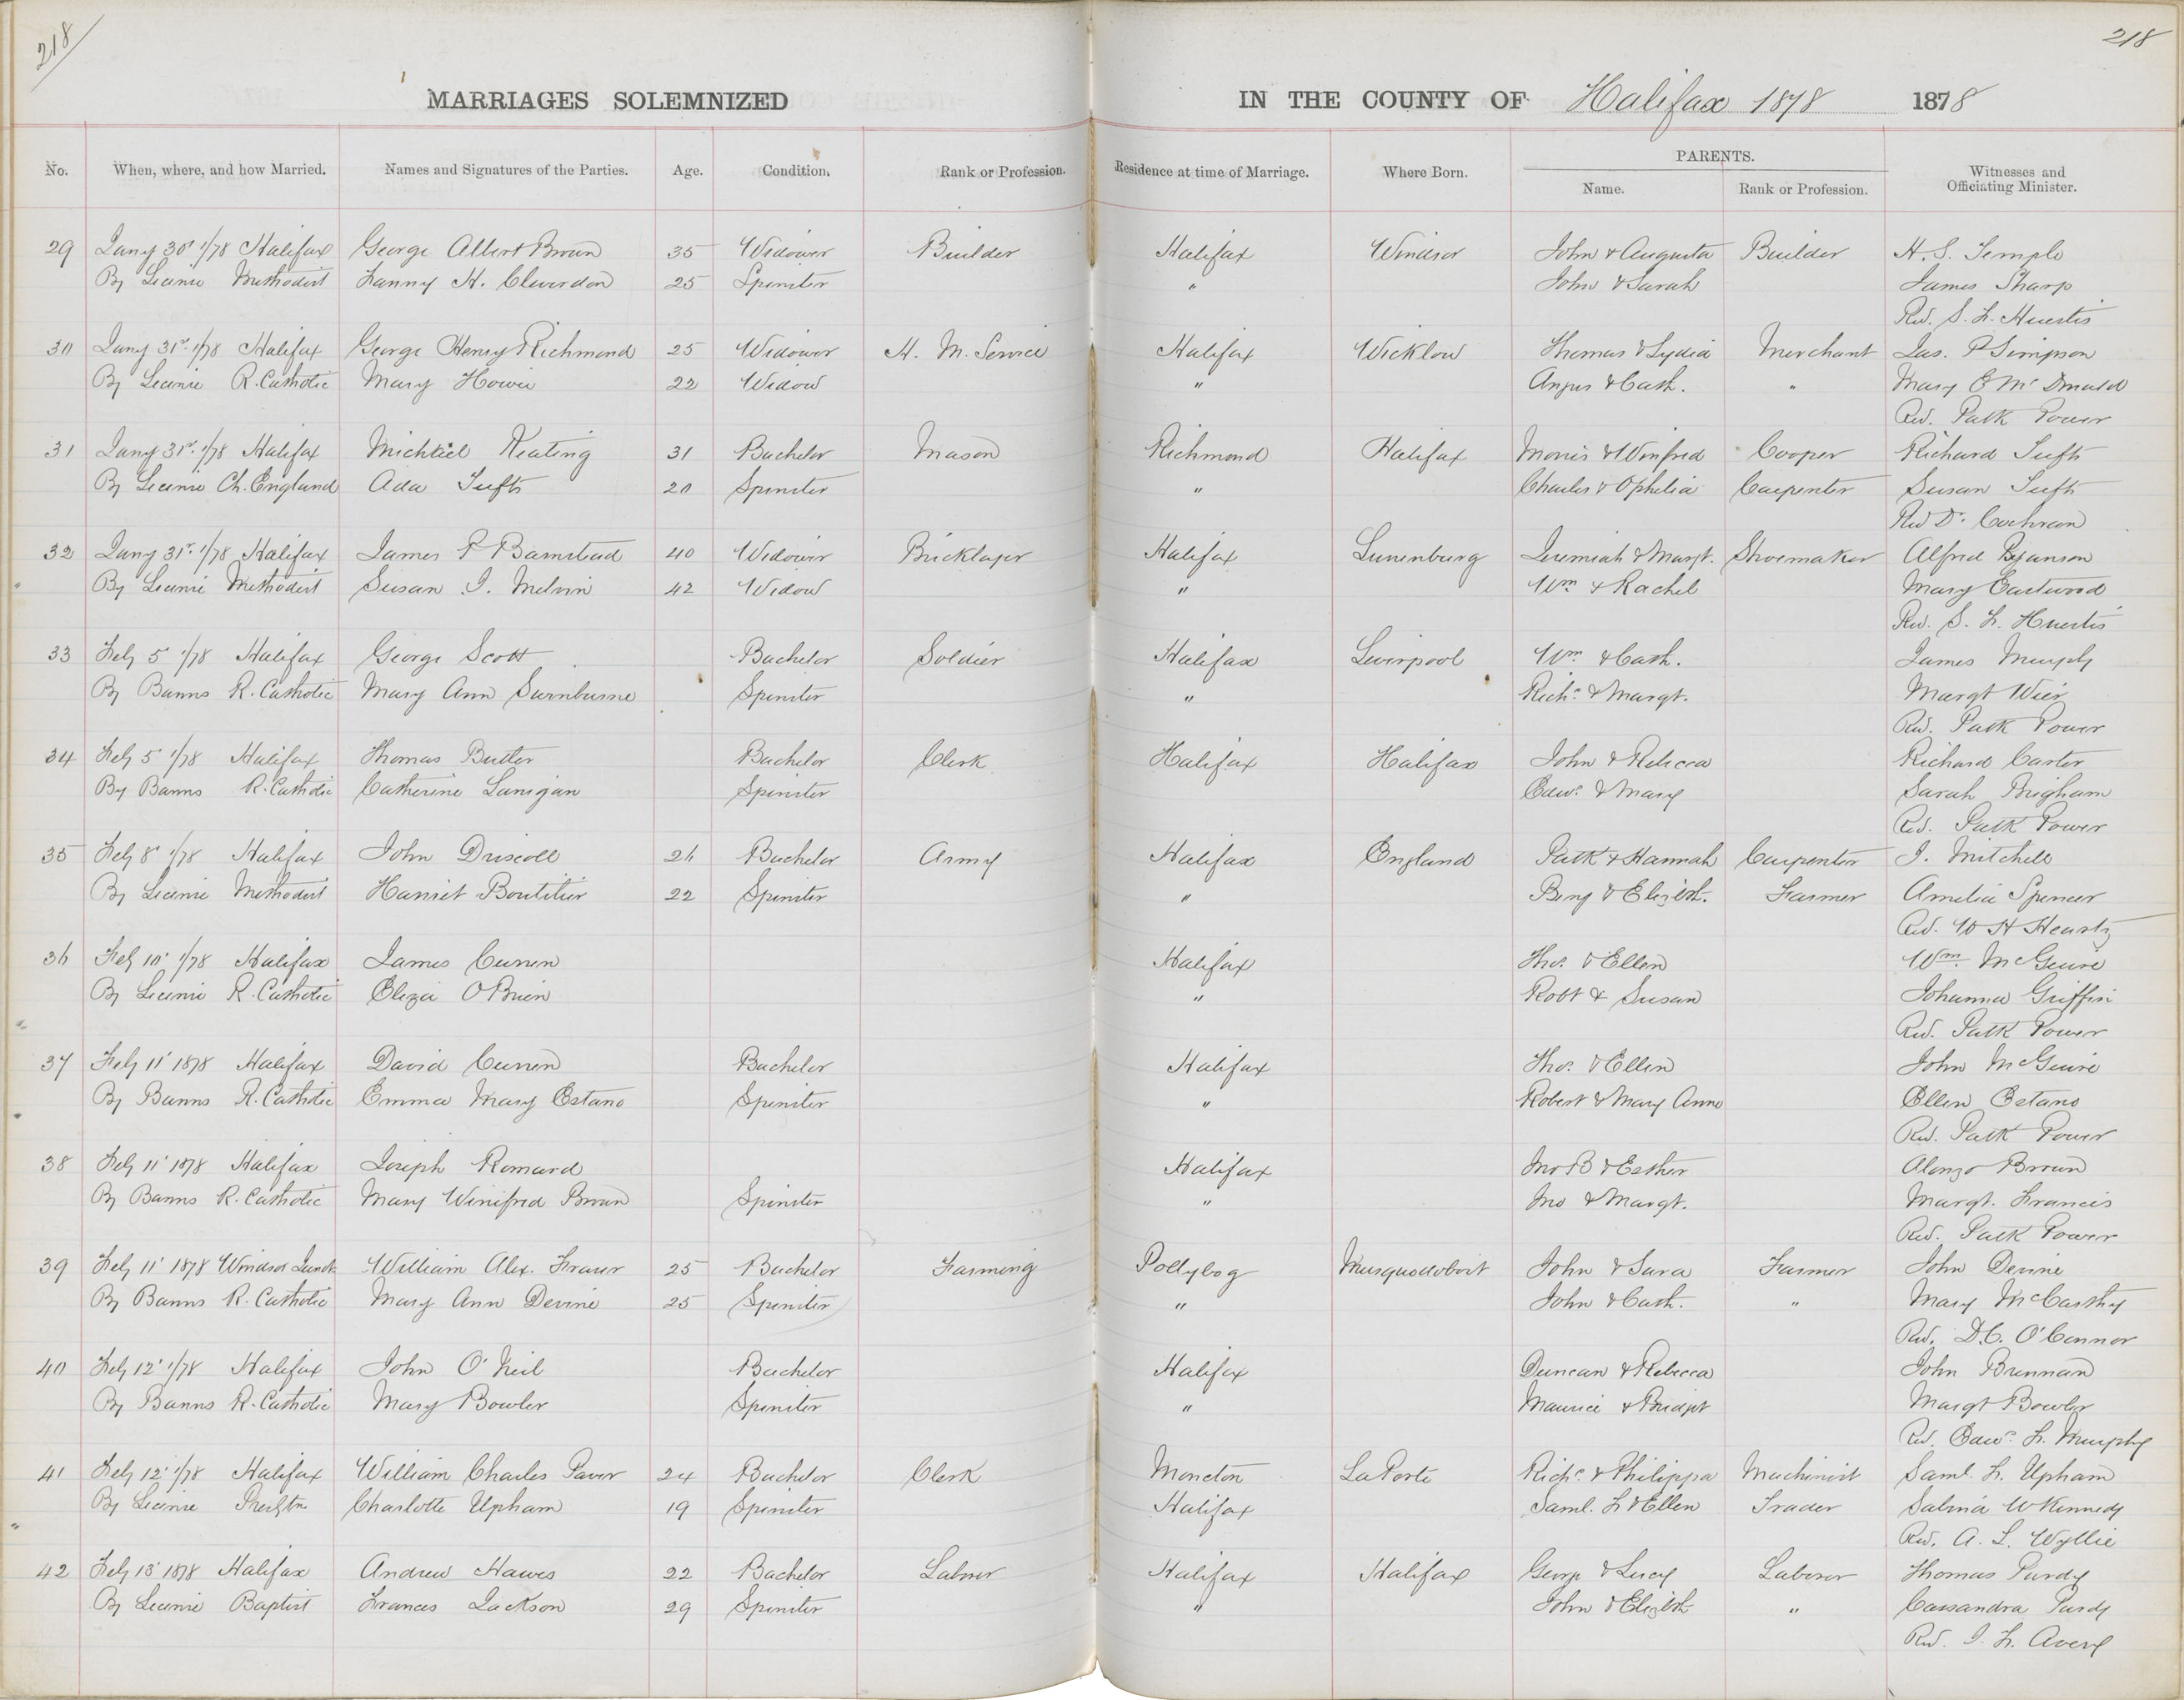 218
218
MARRIAGES SOLEMNIZED IN THE COUNTY OF Halifax 1878 1878
No. When, where, and how Married. Names and Signatures of the Parties. Age. Condition. Rank or Profession. Residence at time of Marriage. Where Born. PARENTS. Name. Rank or Profession. Witnesses and Officiating Minister.
29 Jany 30' 1/78 Halifax George Albert Brown 35 Widower Builder Halifax Windsor John & Augusta Builder H. S. Temple
By Licence Methodist Fanny H. Cleverdon 25 Spinster " John & Sarah James Sharp
Rev. S. F. Huestis
30 Jany 31st 1/78 Halifax George Henry Richmond 25 Widower H. M. Service Halifax Wicklow Thomas & Lydia Merchant Jas. P Simpson
By Licence R. Catholic Mary Howie 22 Widow " Angus & Cath. " Mary E McDonald
Rev. Patk Power
31 Jany 31st 1/78 Halifax Michael Keating 31 Bachelor Mason Richmond Halifax Morris & Winifred Cooper Richard Tufts
By Licence Ch. England Ada Tufts 20 Spinster " Charles & Ophelia Carpenter Susan Tufts
Rev Dr. Cochran
32 Jany 31st 1/78 Halifax James P Bamstead 40 Widower Bricklayer Halifax Lunenburg Jeremiah & Margt. Shoemaker Alfred Bezanson
By Licence Methodist Susan J. Melvin 42 Widow " Wm & Rachel Mary Eastwood
Rev. S. F. Huestis
33 Feby 5 1/78 Halifax George Scott Bachelor Soldier Halifax Liverpool Wm & Cath. James Murphy
By Banns R. Catholic Mary Ann Surnburne Spinster " Richd & Margt. Margt Wier
Rev. Patk Power
34 Feby 5 1/78 Halifax Thomas Butler Bachelor Clerk Halifax Halifax John & Rebecca Richard Carter
By Banns R. Catholic Catherine Lanigan Spinster Edwd & Mary Sarah Brigham
Rev. Patk Power
35 Feby 8' 1/78 Halifax John Driscoll 26 Bachelor Army Halifax England Patk & Hannah Carpenter J. Mitchell
By Licence Methodist Harriet Boutilier 22 Spinster " Benj & Elizbth. Farmer Amelia Spencer
Rev. W H Heartz
36 Feby 10' 1/78 Halifax James Curren Halifax Thos. & Ellen Wm McGuire
By Licence R. Catholic Eliza O'Brien " Robt & Susan Johanna Griffin
Rev. Patk Power
37 Feby 11' 1878 Halifax David Curren Bachelor Halifax Thos. & Ellen John McGuire
By Banns R. Catholic Emma Mary Estano Spinster " Robert & Mary Anne Ellen Estano
Rev. Patk Power
38 Feby 11' 1878 Halifax Joseph Romard Halifax Jno B & Esther Alonzo Brown
By Banns R. Catholic Mary Winifred Brown Spinster " Jno & Margt. Margt. Francis
Rev. Patk Power
39 Feby 11' 1878 Windsor Junct William Alex. Fraser 25 Bachelor Farming Pollybog Musquodoboit John & Sara Farmer John Devine
By Banns R. Catholic Mary Ann Devine 25 Spinster " John & Cath. " Mary McCarthy
Rev. D.C. O'Connor
40 Feby 12' 1/78 Halifax John O'Neil Bachelor Halifax Duncan & Rebecca John Brennan
By Banns R. Catholic Mary Bowler Spinster " Maurice & Bridget Margt Bowler
Rev. Edwd. F. Murphy
41 Feby 12' 1/78 Halifax William Charles Paver 24 Bachelor Clerk Moncton LaPorte Richd & Philippa Machinist Saml. F. Upham
By Licence Presbtn Charlotte Upham 19 Spinster Halifax Saml. F & Ellen Trader Salina W Kennedy
Rev. A. L. Wyllie
42 Feby 13' 1878 Halifax Andrew Hawes 22 Bachelor Labrer Halifax Halifax George & Lucy Laborer Thomas Purdy
By Licence Baptist Frances Jackson 29 Spinster " John & Elizbth " Cassandra Purdy
Rev. J. F. Avery